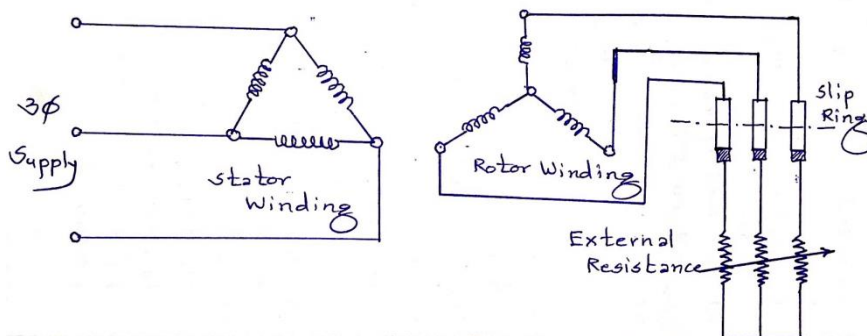 3φ
Supply
Stator
Winding
Rotor Winding
Slip
Ring
External
Resistance